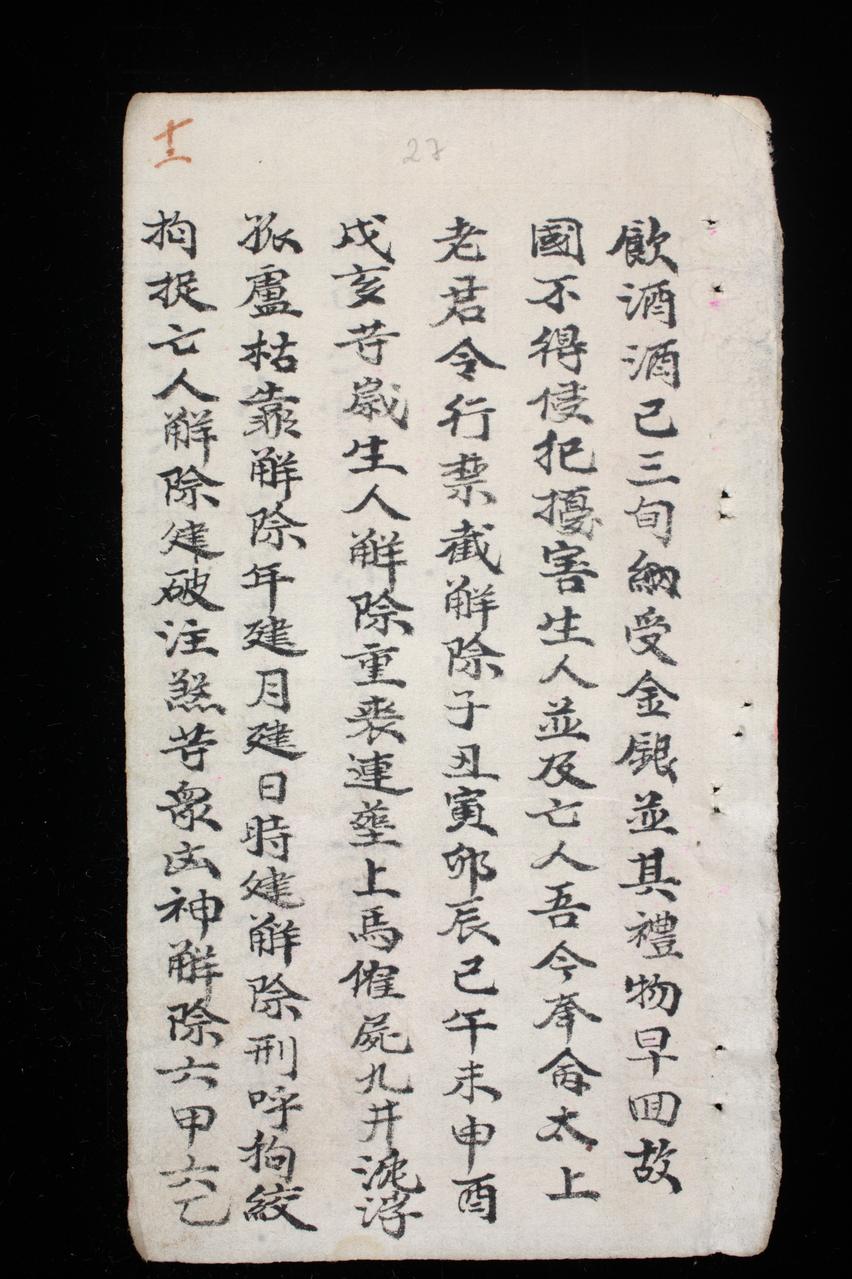 27
飲酒酒已三旬納受金銀並其禮物早囬故
國不得侵犯擾害生人並及亡人吾今奉命太上
老君令行禁截解除子丑寅卯辰巳午未申酉
戌亥等歲生人解除重喪連塟上馬催屍九井沈浮
孤盧枯靠解除年建月建日時建解除刑呼拘絞
拘捉亡人解除建破注煞等衆凶神解除六甲六乙
十三